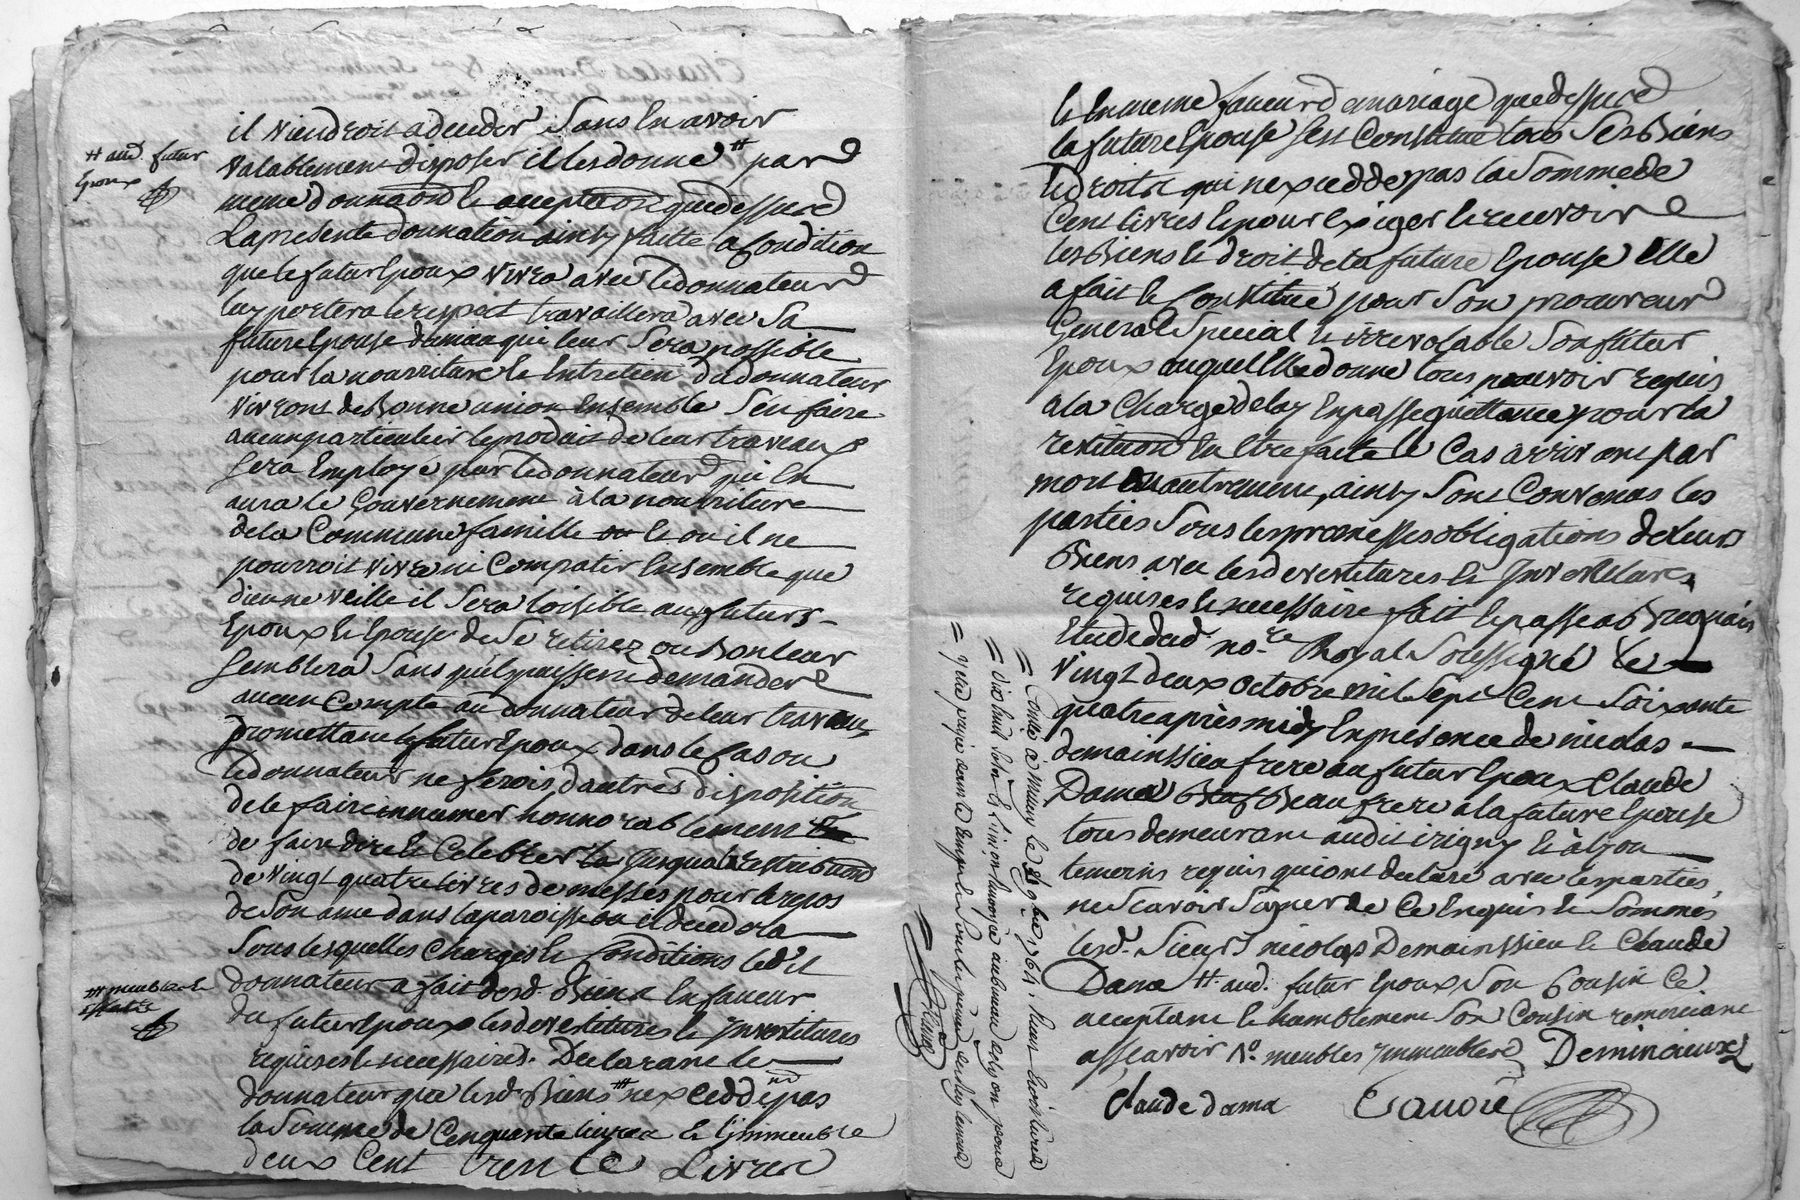 il viendroit a deceder Sans En avoir
valablement disposer il les donne # par
# aud. futur
Epoux
meme donnaon le acceptaon que dessure
La presente donnation ainsy faitte a Condition
que le futur Epoux vivra avec le donnateur
luy portera le respect travaillera avec Sa
future Epouse de mieu qui leur Sera possible
pour la nourriture Et Entretien du donnateur
vivront de Bonne union Ensemble S'en faire
aucun particulier le produit de leur traveaux
Sera Employé par le donnateur qui En
aura le Gouvernement à la nourriture
de la Commune famille Et ou il ne
pourroit vivre ni Compatir Ensemble que
dieu ne veille il Sera loisible aux futurs
Epoux Et Epouse de Se retirez ou Bon leur
Semblera Sans qu'il puissent demander
aucun Compte au donnateur de leur travaux
promettant le futur Epoux dans le Cas ou
le donnateur ne feroit d'autres disposition
de le faire innumer honnorablement
de faire dire Et Celebrer Jusqua retribuon
de vingt quatre livres de messes pour le repos
de Son ame dans la paroisse ou il decedera
Sous lesquelles Charges Et Conditions led.
donnateur a fait desd. Biens En faveur
### meubles Et
du futur Epoux les devestitures Et Investitures
requises Et necessaires. Declarant le
donnateur que lesd. Biens ### nexceddent pas
la Somme de Cenquante livres Et l'immeuble
deux Cent trente Livres
Et En meme faveur de mariage que dessure
la future Epouse Sest Constitué tous Ses Biens
Et droits qui nexcedde pas la Somme de
Cent livres Et pour Exiger Et recevoir
les Biens Et droit de la future Epouse Elle
a fait Et Constitué pour Son procureur
General Special Et irrevocable Son futur
Epoux auquel Elle donne tous pouvoir requis
a la Charge de luy En passe quittance pour la
restituon En Etre faite le Cas arrivant par
mort ou autrement, ainsy Sont Convenus les
parties Sous les promesses obligations de leurs
Biens avec les devestitures Et Investitures
requises Et necessaire fait Et passe a Bregnais
Etude dud. no.re Royal Soussigné Le
vingt deux octobre mil Sept Cent Soixante
quatre après midy En presence de nicolas
demainssieu frere au futur Epoux Claude
Dama Beau frere à la future Epouse
tous demeurant audit irigny Et à lyon
temoins requis qui ont declaré avec les parties
ne Scavoir Signer de Ce Enquis Et Sommés
lesd. Sieurs nicolas Demainssieu Et Claude
Dama # aud. futur Epoux Son Cousin Ce
acceptant Et humblement Son Cousin remerciant
asscavoir No. meubles immeubles Deminsieux
Claude dama
= Controllé à le 9bre 1764.